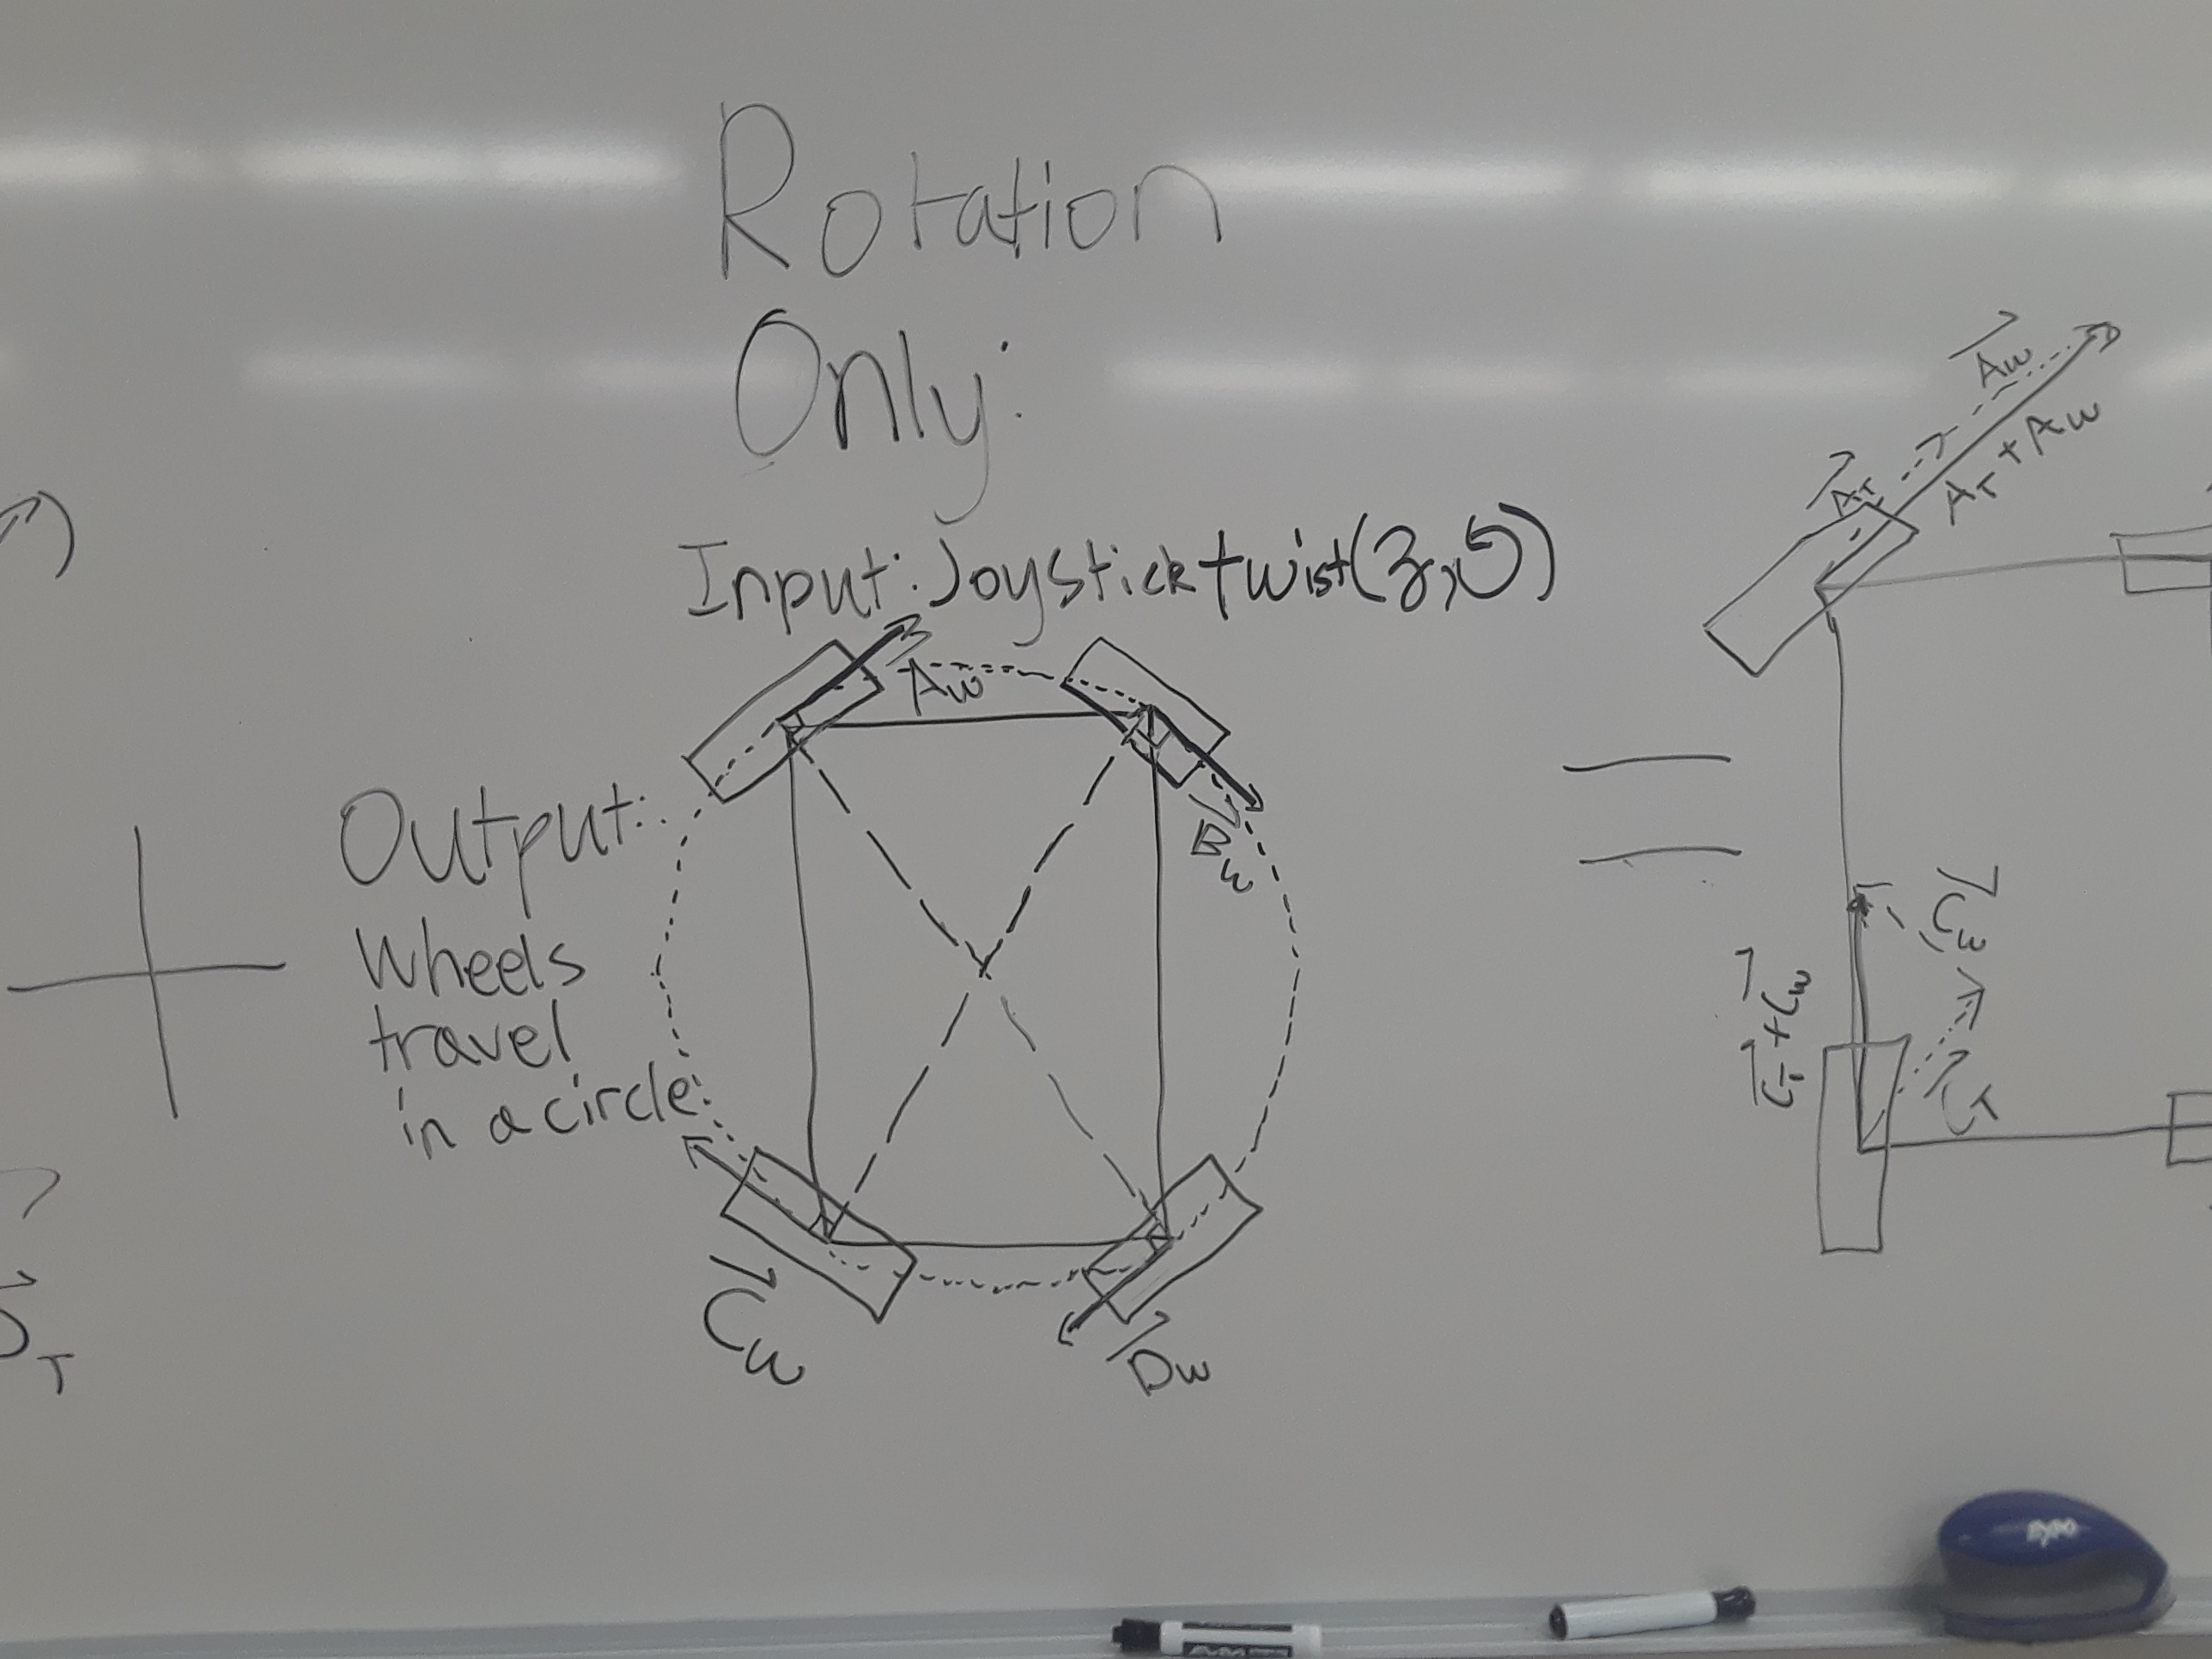 Rotation
Only:
Input: Joystick twist(z,↺)
Aw
Bw
Output:
Wheels
travel
in a circle:
Cw
Dw
T
Aw
AT
AT+Aw
Cw
CT+Cw
CT
EXPO